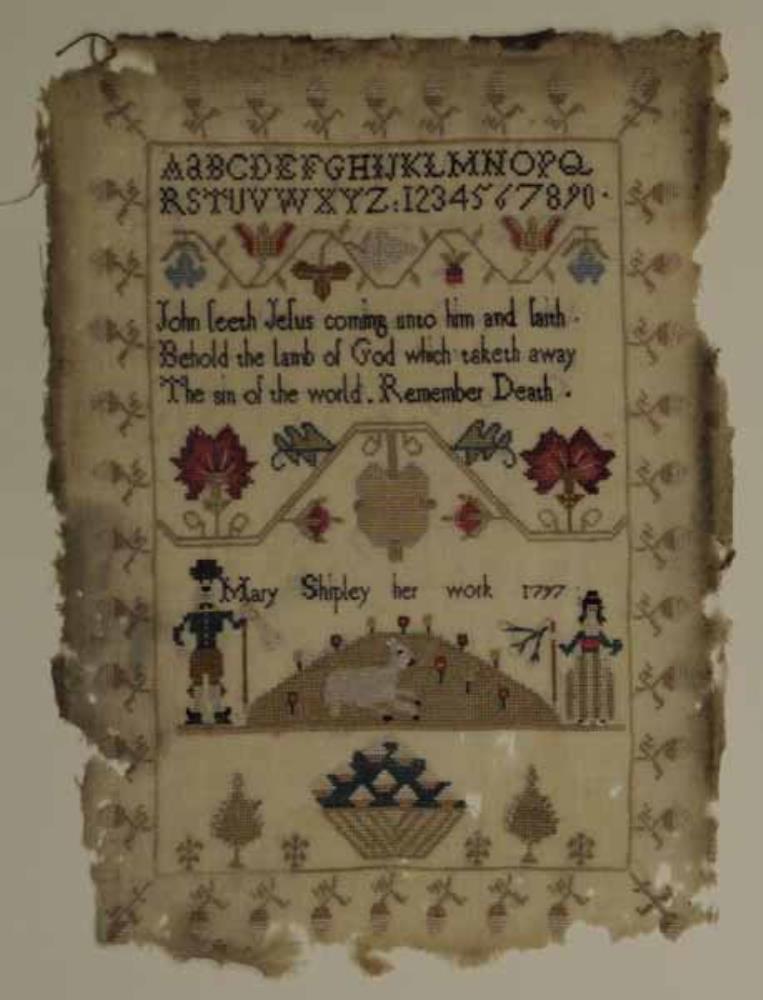 AaBCDEFGHIJKLMNOPQ
RSTUVWXYZ:1234567890.
John ſeeth Jeſus coming unto him and ſaith.
Behold the lamb of God which taketh away
The sin of the world. Remember Death.
Mary Shipley her work 1797